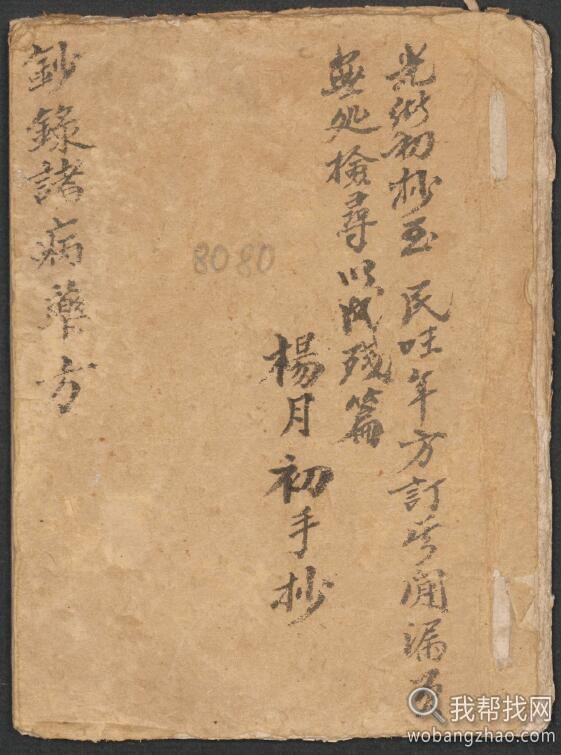 光緒初抄至 民國年方訂 間漏
無处檢尋以成殘篇
楊月初手抄
8080
鈔錄諸病藥方
我帮找网
wobangzhao.com